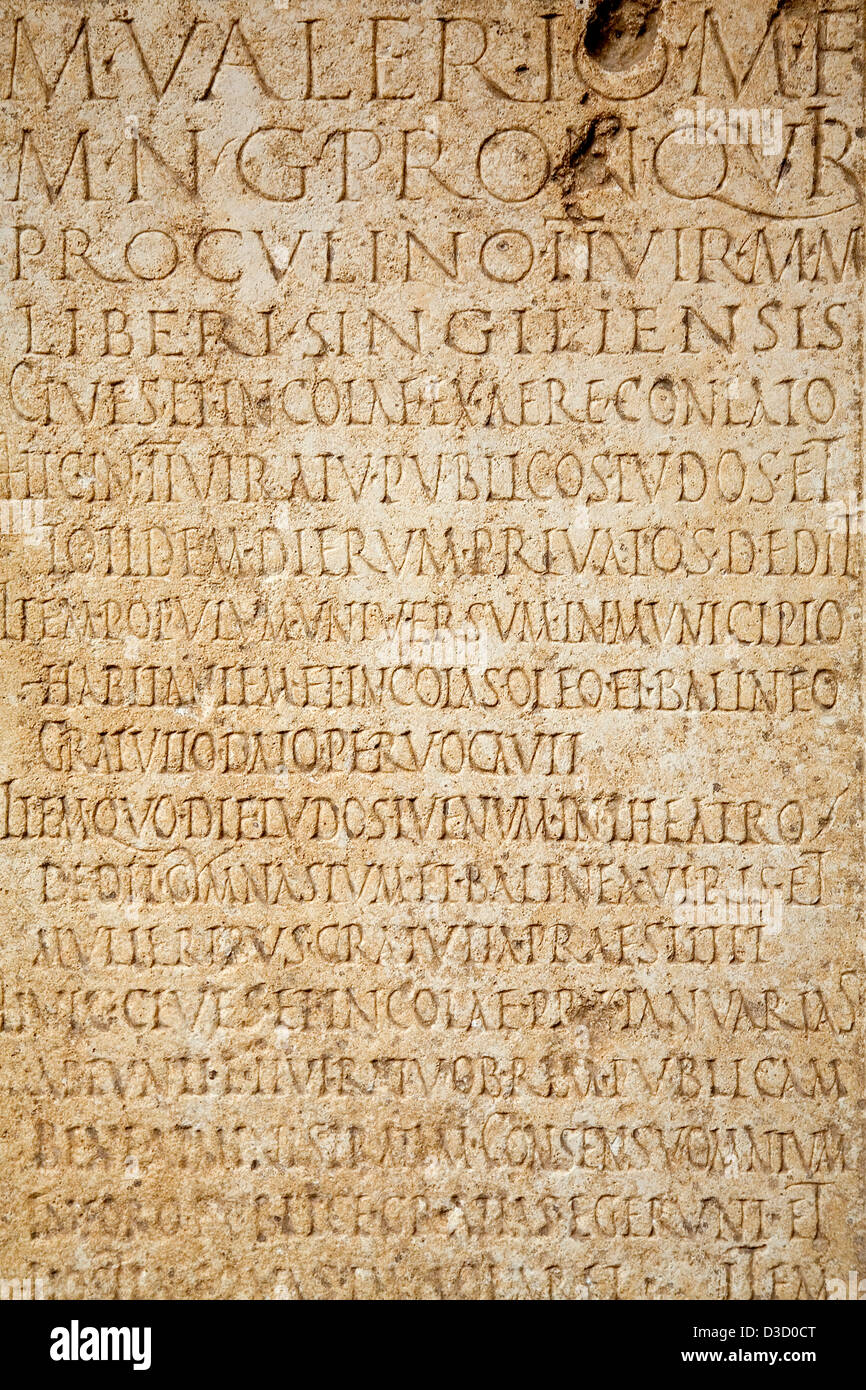 M·VALERIO·M·F
M·N·G·PRON·QVIR
PROCVLINO·II·VIR·M·M
LIBERI·SINGILIENSIS
CIVES·ET·INCOLAE·EX·AERE·CONLATO
HIC·IN·II·VIRATV·PVBLICOS·LVDOS·ET
TOTIDEM·DIERVM·PRIVATOS·DEDIT
ITEM·POPVLVM·VNIVERSVM·IN·MVNICIPIO
HABITANTEM·ET·INCOLAS·OLEO·ET·BALINEO
GRATVITO·DATO·PERVOCAVIT
ITEM·QVO·DIE·LVDOS·IVVENVM·IN·THEATRO
DEDIT·GYMNASIVM·ET·BALINEA·VIRIS·ET
MVLIERIBVS·GRATVITA·PRAESTITIT
HVIC·CIVES·ET·INCOLAE·PR·IANVARIAS
ABEVNTI·E·II·VIRATV·OB·REM·PVBLICAM
CONSENSV·OMNIVM
GRATIAS·EGERVNT·ET
ITEM
alamy
Image ID: 3D3OCT
www.alamy.com